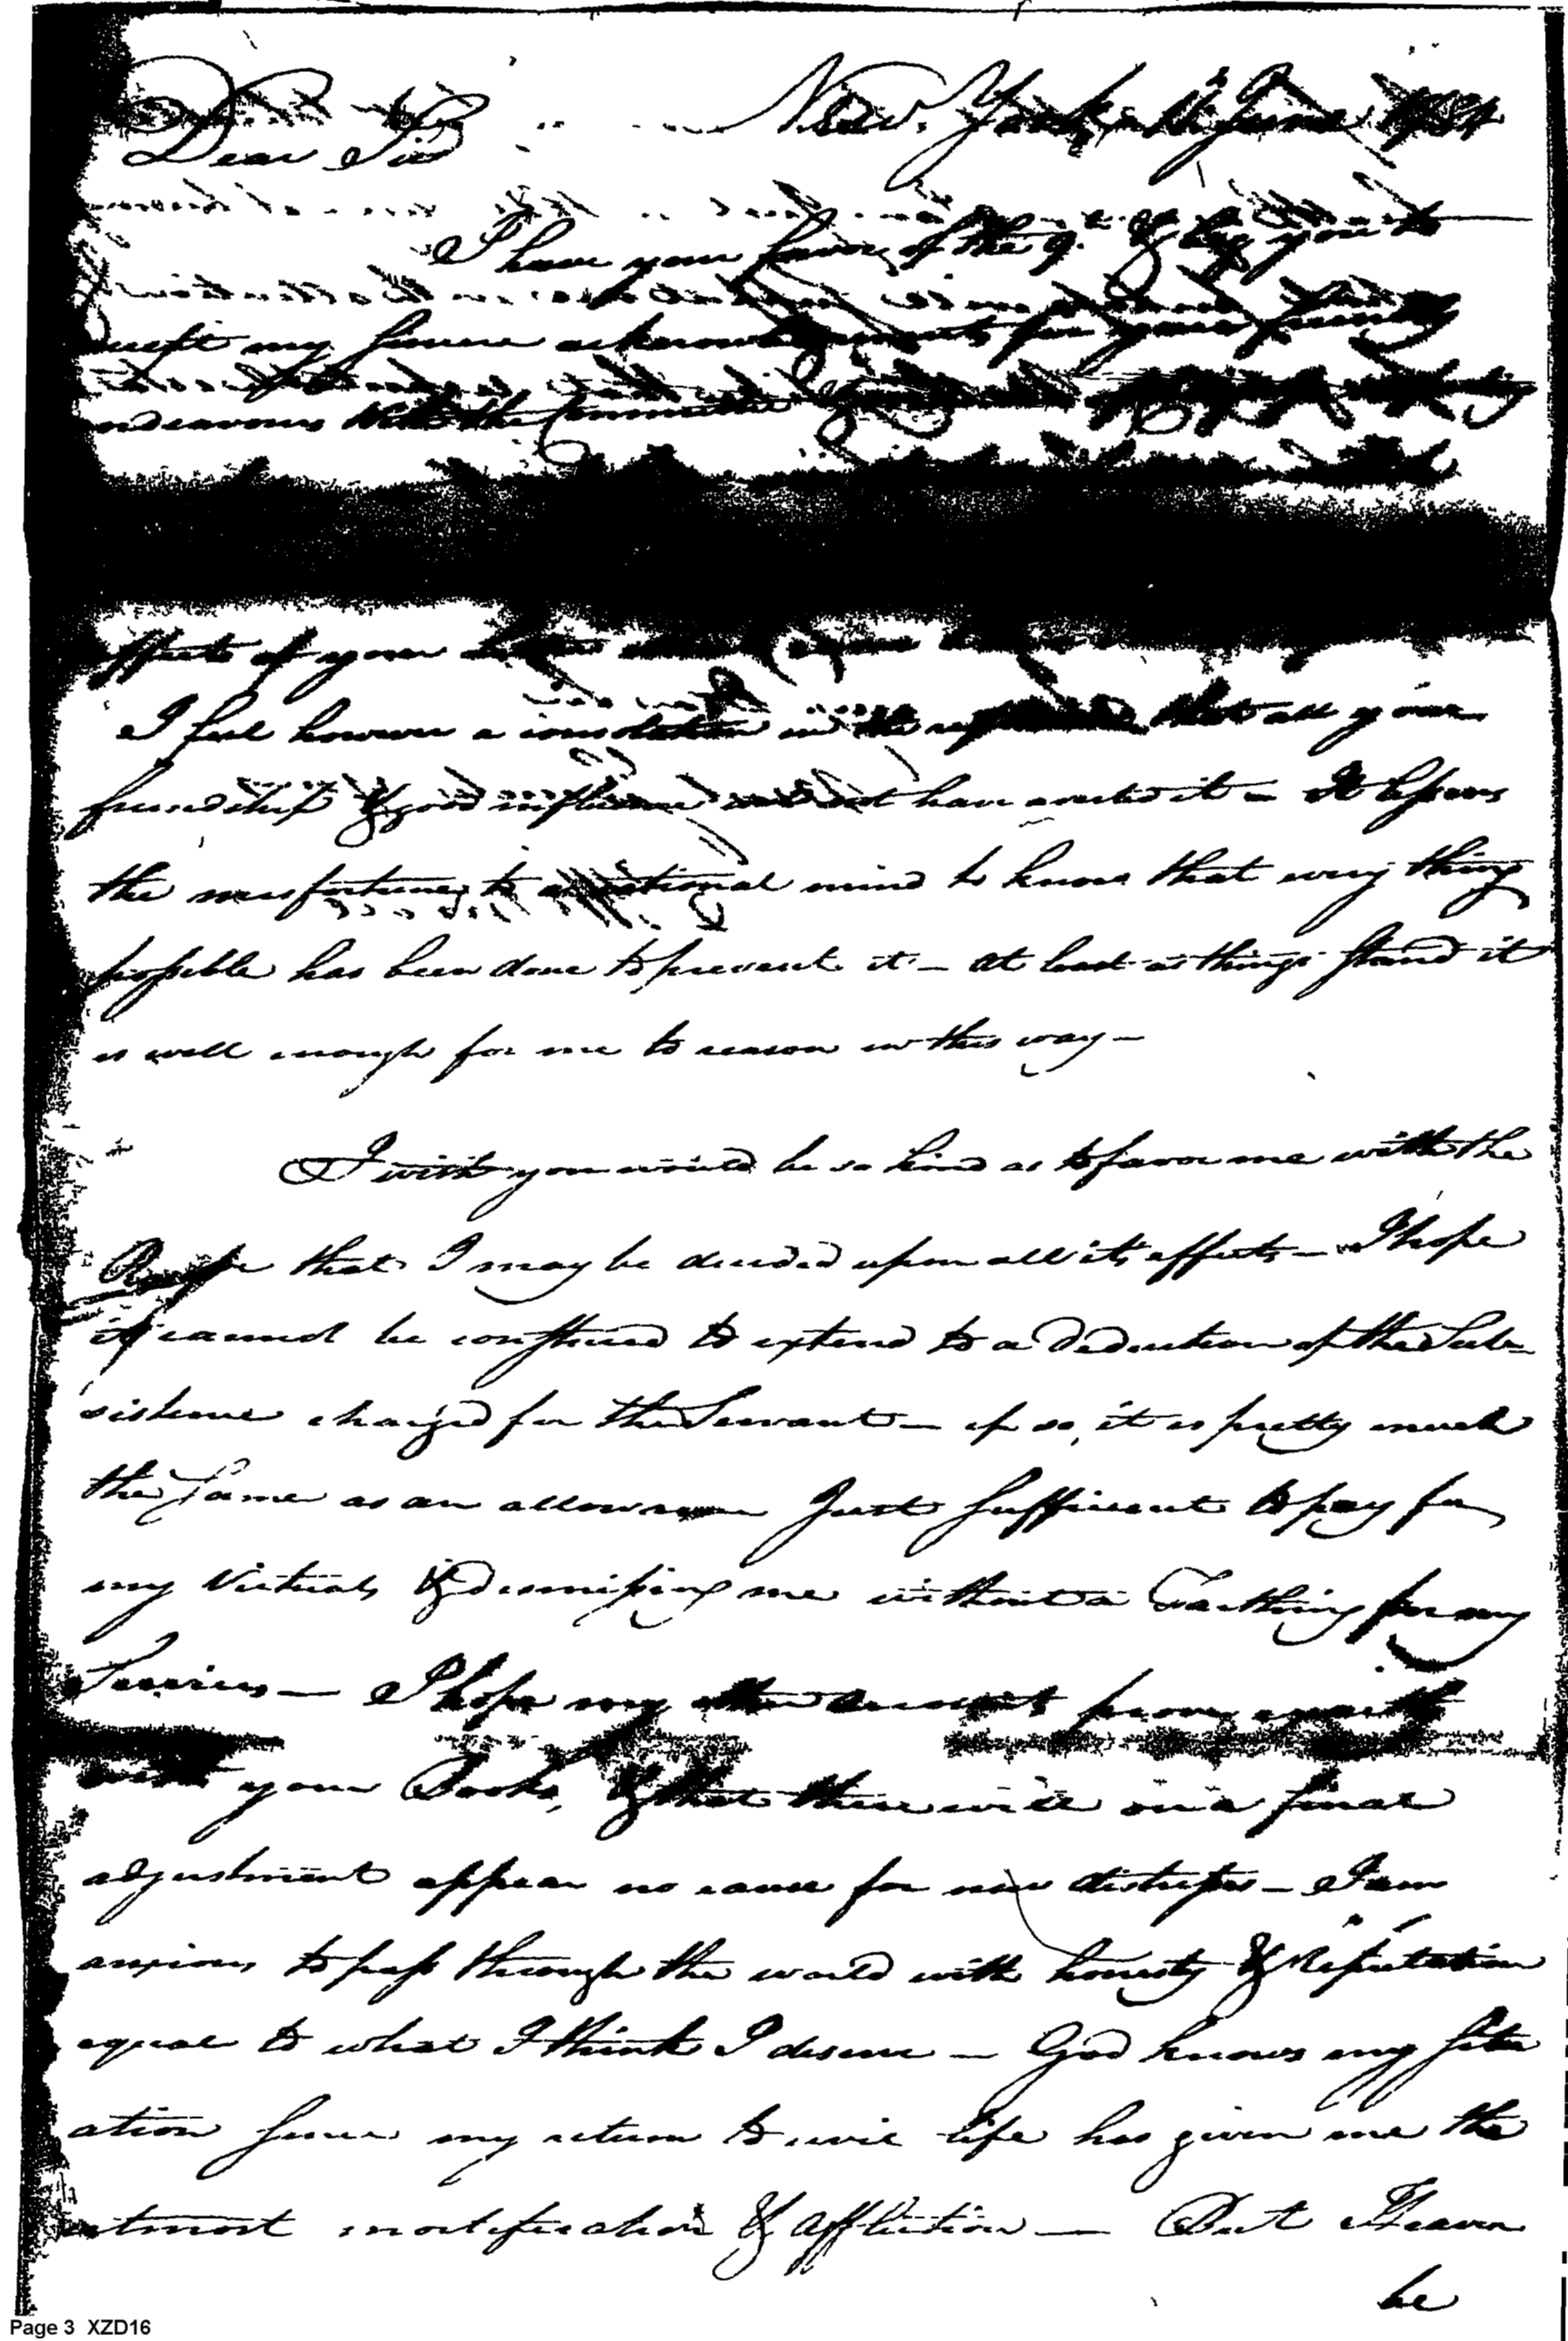 Dear Sir
New. York, June
I have your favor of the 9th & beg you to
accept my sincere acknowledgements for your friendly
endeavours with the Committee
effects of your
I feel however a consolation in the reflection that all your
friendship & good influence could not have averted it – It lessens
the misfortune, to a rational mind to know that every thing
possible has been done to prevent it – at least as things stand it
is well enough for me to reason in this way –
I wish you would be so kind as to favor me with the
that I may be decided upon all it's effects – I hope
it cannot be construed to extend to a Deduction of the Sub=
sistence charged for the Servant – if so, it is pretty much
the same as an allowance Just sufficient to pay for
my Victuals & dismissing me without a Farthing for my
Services – I hope my
your Books, & that there will on a final
adjustment appear no cause for new distress – I am
anxious to pass through the world with honesty & Reputation
equal to what I think I deserve – God knows my situ
ation since my return to civil life has given me the
utmost mortification & affliction – But Heaven
be
Page 3 XZD16